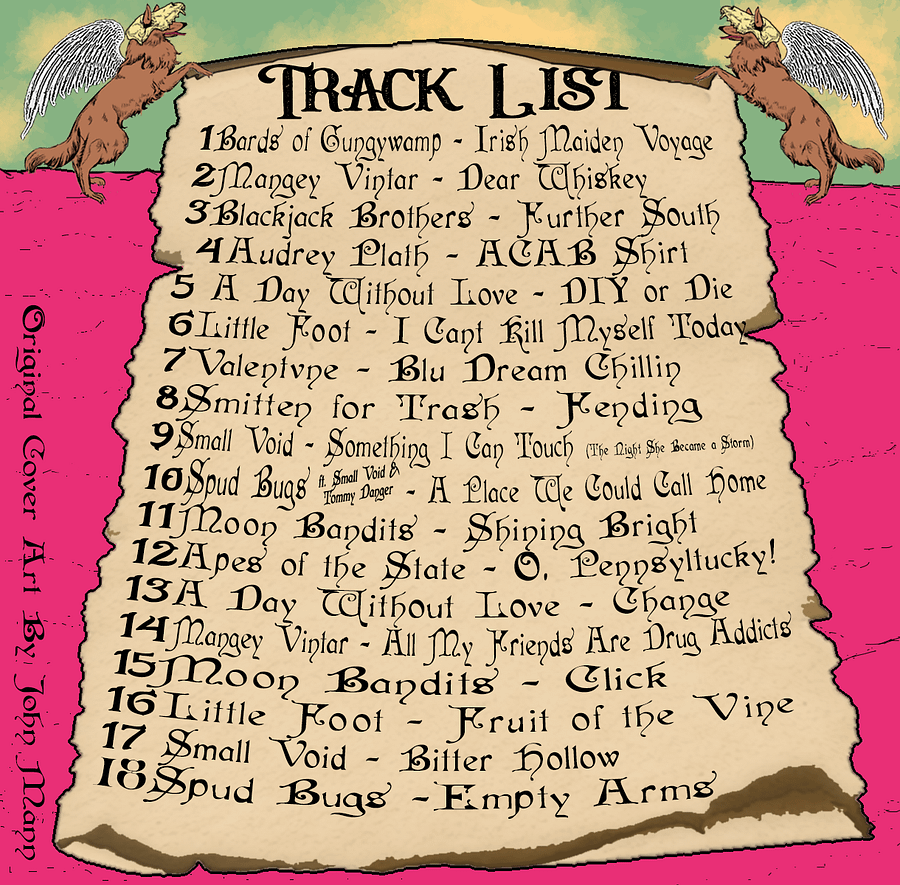 Track List
1 Bards of Gungywamp - Irish Maiden Voyage
2 Mangey Vintar - Dear Whiskey
3 Blackjack Brothers - Further South
4 Audrey Plath - ACAB Shirt
5 A Day Without Love - DIY or Die
6 Little Foot - I Cant Kill Myself Today
7 Valentvne - Blu Dream Chillin
8 Smitten for Trash - Fending
9 Small Void - Something I Can Touch (The Night She Became a Storm)
10 Spud Bugs ft. Small Void & Tommy Danger - A Place We Could Call Home
11 Moon Bandits - Shining Bright
12 Apes of the State - O, Pennsyltucky!
13 A Day Without Love - Change
14 Mangey Vintar - All My Friends Are Drug Addicts
15 Moon Bandits - Click
16 Little Foot - Fruit of the Vine
17 Small Void - Bitter Hollow
18 Spud Bugs - Empty Arms
Original Cover Art By: John Mann